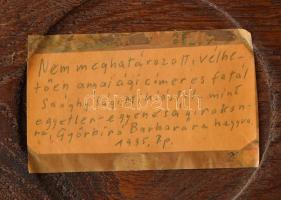 Nem meghatározott, vélhe-
tően amai ági címeres fatál
mint
egyetlen egyenesági rokon-
ra, Győrbíró Barbarára hagyva.
1995. Bp.